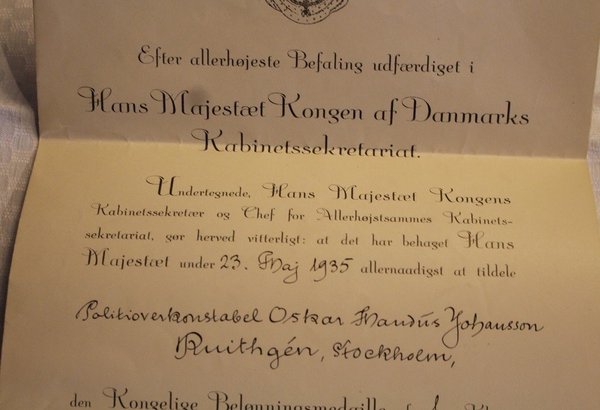 Efter allerhøjeste Befaling udfærdiget i
Hans Majestæt Kongen af Danmarks
Kabinetssekretariat.
Undertegnede, Hans Majestæt Kongens
Kabinetssekretær og Chef for Allerhøjstsammes Kabinets-
sekretariat, gør herved vitterligt: at det har behaget Hans
Majestæt under 23. Maj 1935 allernaadigst at tildele
Politioverkonstabel Oskar Johansson
Stockholm,
den Kongelige Belønningsmedaille af